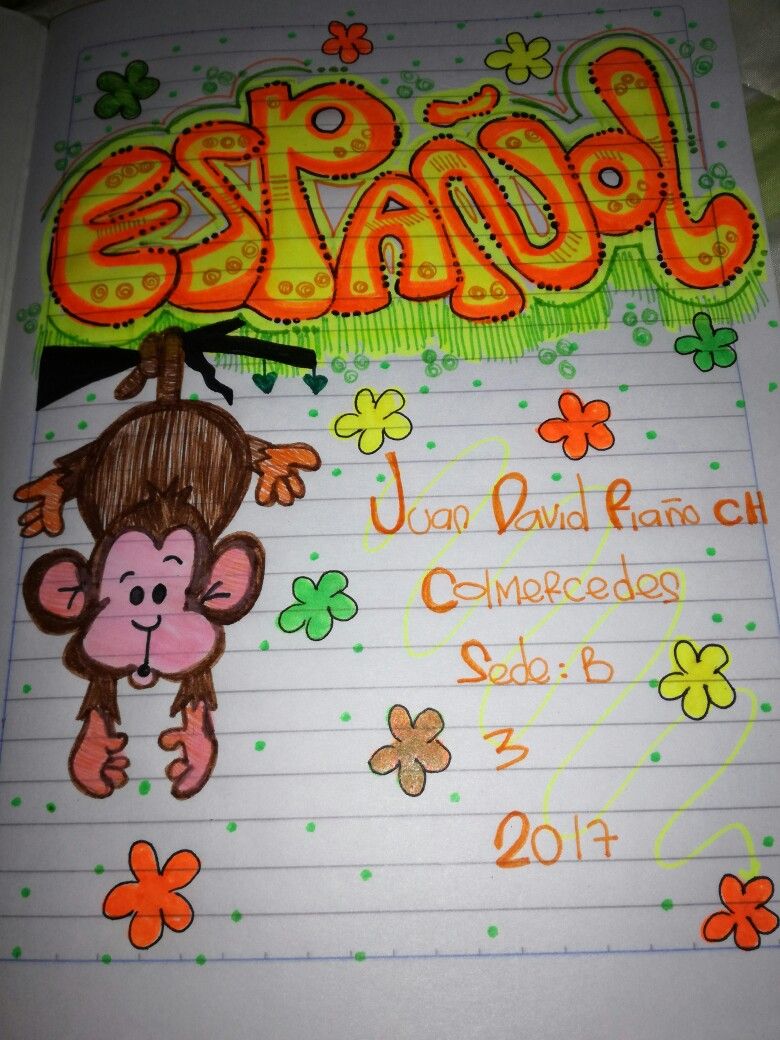 ESPAÑOL
Juan David Riaño CH
Colmercedes
Sede: B
3
2017